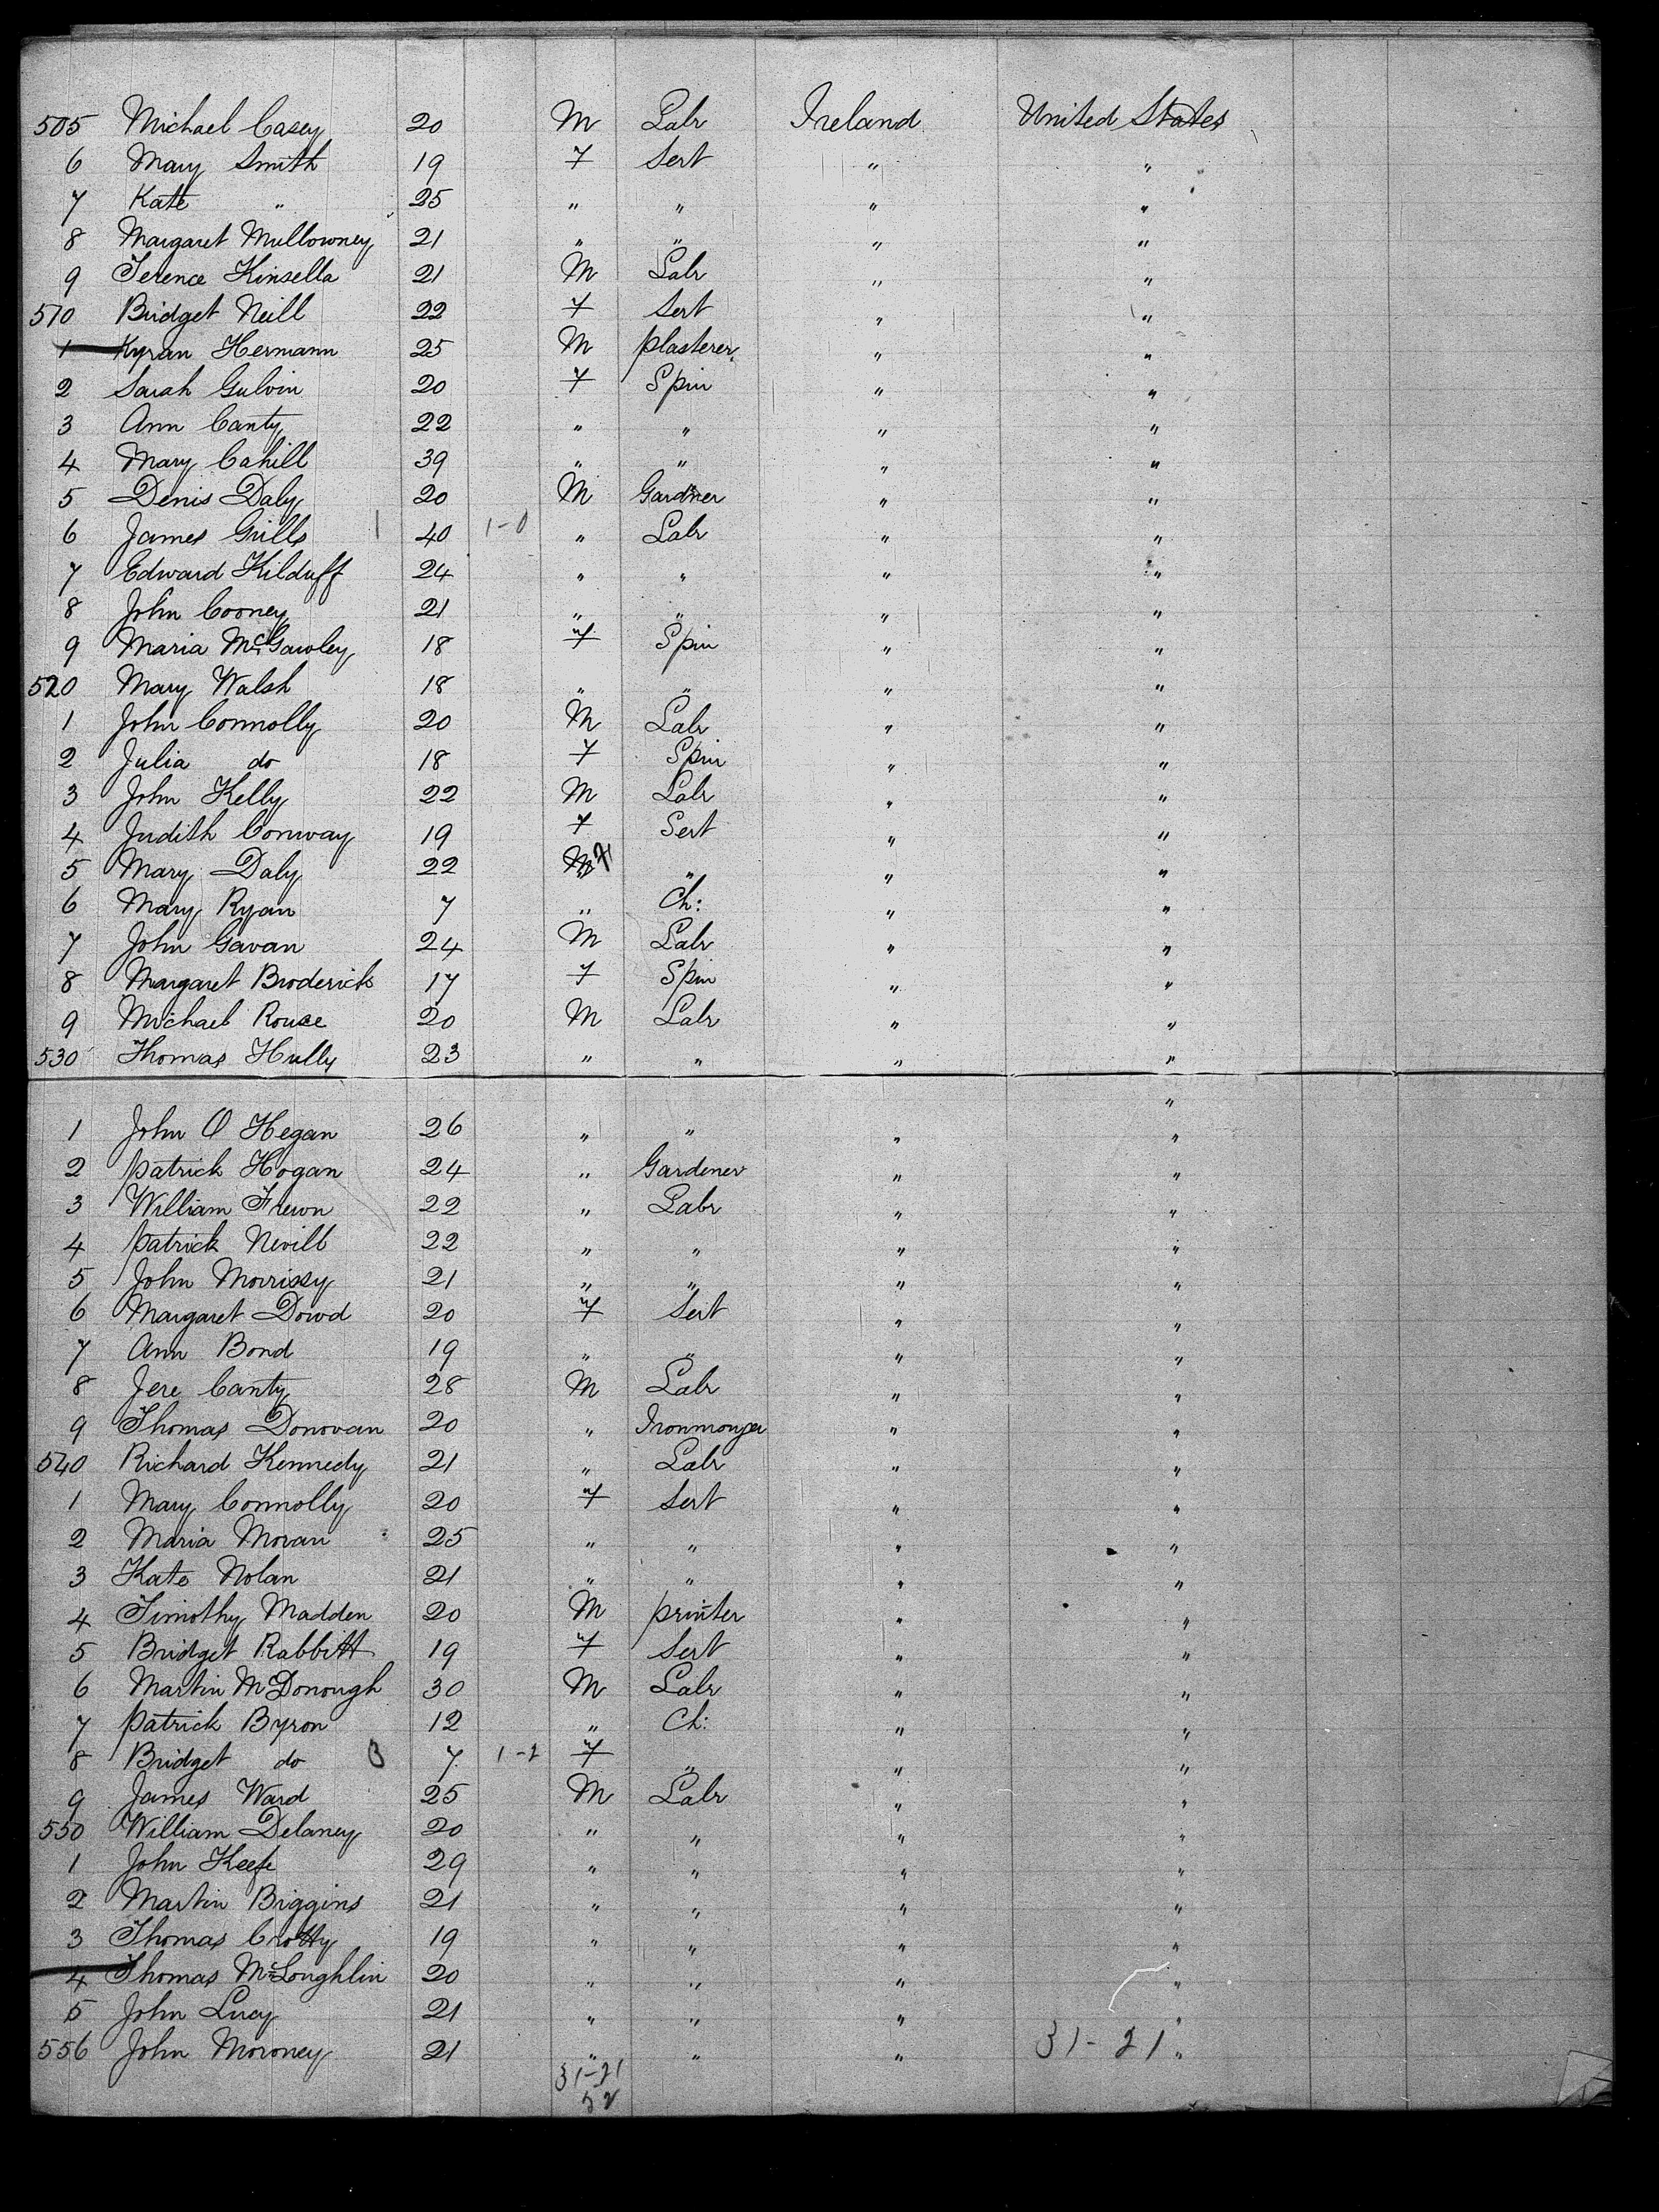 505 Michael Casey 20 M Labr Ireland United States
6 Mary Smith 19 F Sert " "
7 Kate " 25 " " " "
8 Margaret Mullowney 21 " " " "
9 Terence Kinsella 21 M Labr " "
510 Bridget Neill 22 F Sert " "
1 Kyran Hermann 25 M plasterer " "
2 Sarah Gulvin 20 F Spin " "
3 Ann Canty 22 " " " "
4 Mary Cahill 39 " " " "
5 Denis Daly 20 M Gardner " "
6 James Grills 1 40 1-0 " Labr " "
7 Edward Kilduff 24 " " " "
8 John Cooney 21 " " " "
9 Maria McGawley 18 F Spin " "
520 Mary Walsh 18 " " " "
1 John Connolly 20 M Labr " "
2 Julia do 18 F Spin " "
3 John Kelly 22 M Labr " "
4 Judith Conway 19 F Sert " "
5 Mary Daly 22 F " " "
6 Mary Ryan 7 " Ch: " "
7 John Gavan 24 M Labr " "
8 Margaret Broderick 17 F Spin " "
9 Michael Rouse 20 M Labr " "
530 Thomas Hully 23 " " " "
"
1 John O Hegan 26 " " " "
2 Patrick Hogan 24 " Gardener " "
3 William Frewn 22 " Labr " "
4 Patrick Nevill 22 " " " "
5 John Morrissy 21 " " " "
6 Margaret Dowd 20 F Sert " "
7 Ann Bond 19 " " " "
8 Jere Canty 28 M Labr " "
9 Thomas Donovan 20 " Ironmonger " "
540 Richard Kennedy 21 " Labr " "
1 Mary Connolly 20 F Sert " "
2 Maria Moran 25 " " " "
3 Kate Nolan 21 " " " "
4 Timothy Madden 20 M printer " "
5 Bridget Rabbitt 19 F Sert " "
6 Martin McDonough 30 M Labr " "
7 Patrick Byron 12 " Ch: " "
8 Bridget do 3 7 1-2 F " " "
9 James Ward 25 M Labr " "
550 William Delaney 20 " " " "
1 John Keefe 29 " " " "
2 Martin Biggins 21 " " " "
3 Thomas Crotty 19 " " " "
4 Thomas McLoughlin 20 " " " "
5 John Lucy 21 " " " "
556 John Moroney 21 " " " 31-21 "
31-21
52